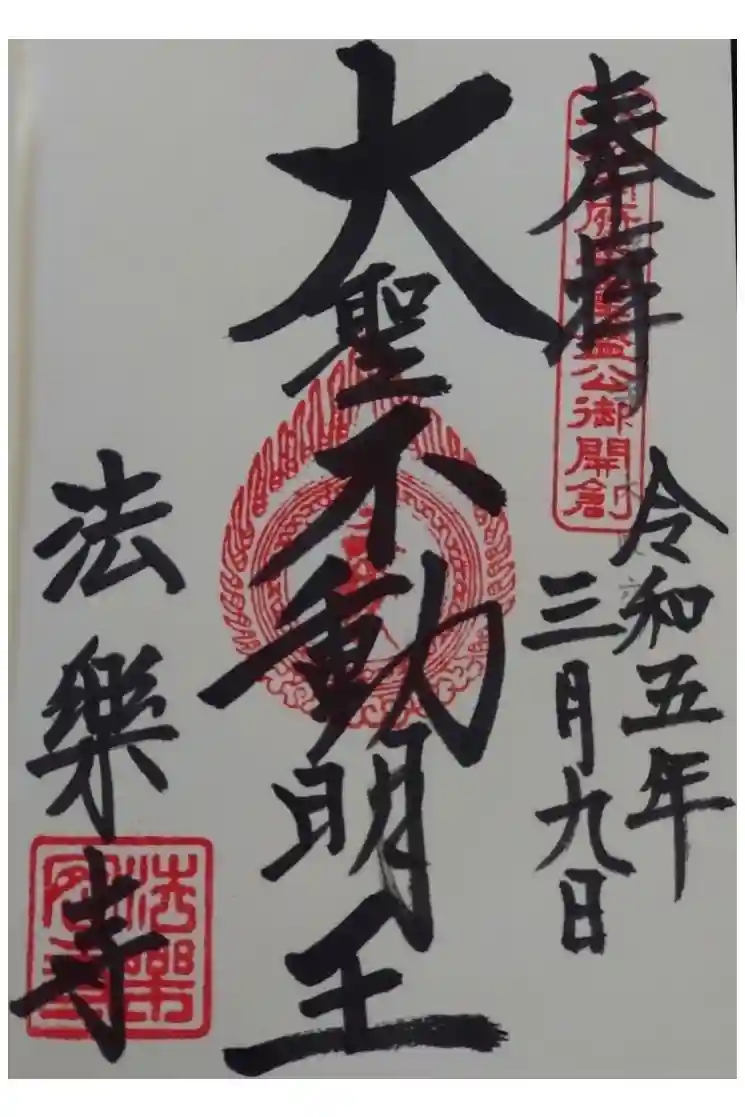 奉拝
公御開創
令和五年
三月九日
大聖不動明王
法樂寺
法樂